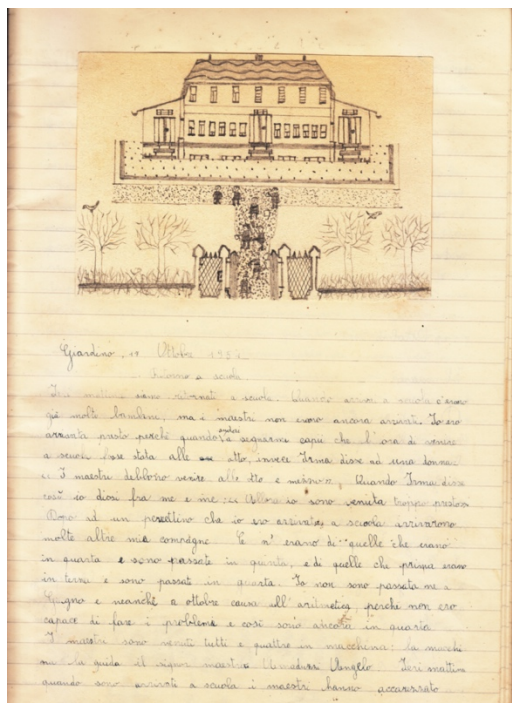 Giardino, 17 Ottobre 1951
Ritorno a scuola
Ieri mattina siamo ritornati a scuola. Quando arrivai a scuola c'erano
già molte bambine, ma i maestri non erano ancora arrivati. Io ero
arrivata presto perchè quando
a scuola fosse stata alle otto, invece Irma disse ad una donna:
"I maestri debbono venire alle otto e mezzo", Quando Irma disse
così io dissi fra me e me: "Allora io sono venuta troppo presto"
Dopo ad un pezzettino che io ero arrivata, a scuola arrivarono
molte altre mie compagne. Ce n'erano di quelle che erano
in quarta e sono passate in quinta, e di quelle che prima erano
in terza e sono passate in quarta. Io non sono passata ne a
Giugno e neanchè a ottobre causa all'aritmetica, perchè non ero
capace di fare i problemi e così sono ancora in quarta
I maestri sono venuti tutti e quattro in macchina: la macchi
na la guida il signor maestro Amaduzzi Angelo. Ieri mattina
quando sono arrivati a scuola i maestri hanno accarezzato